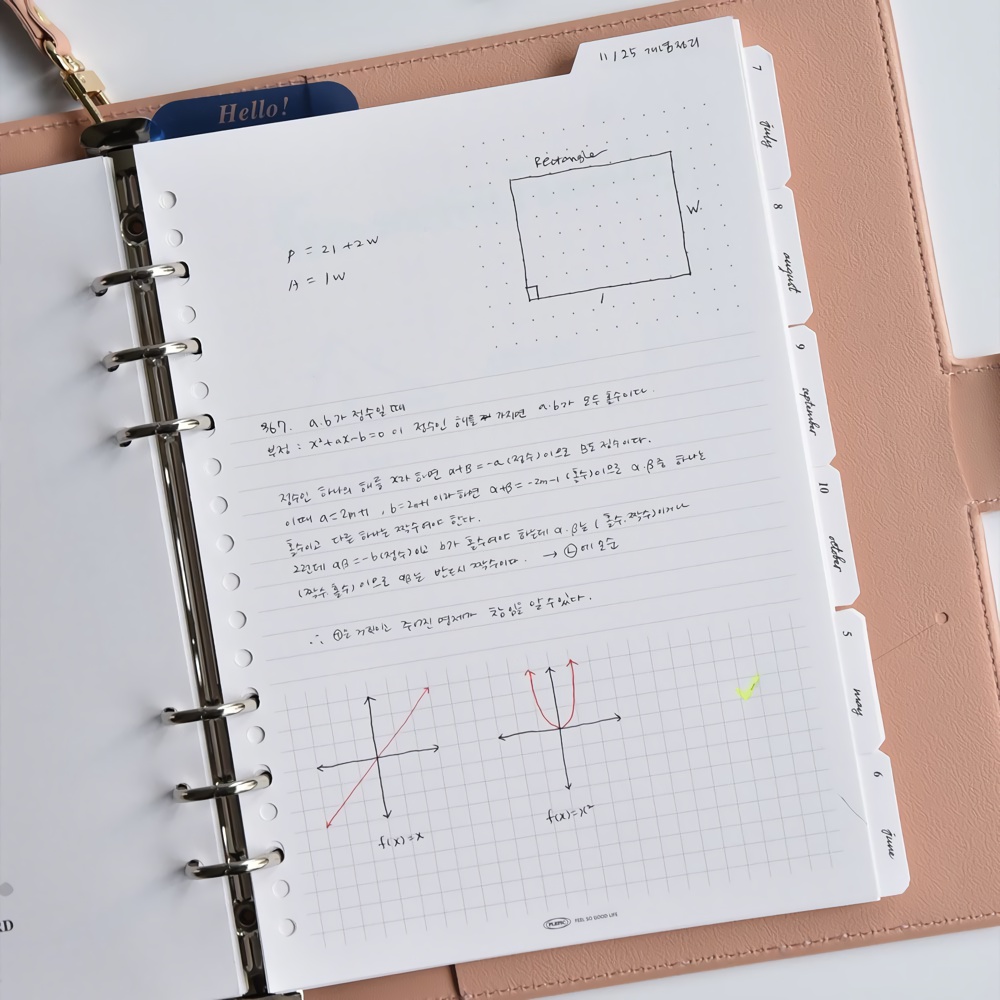 11/25 개념정리
Hello!
Rectangle
W
l
P = 2l + 2w
A = lw
367. a.b가 정수일 때
부정 : x²+ax-b=0 이 정수인 해를 가지면 a.b가 모두 홀수이다.
정수인 하나의 해를 α라 하면 α+β = -a (정수)이므로 β도 정수이다.
이때 a=2m+1 , b=2n+1 이라 하면 α+β = -2m-1 (홀수)이므로 α.β중 하나는
홀수이고 다른 하나는 짝수여야 한다.
그런데 αβ = -b(정수)이고 b가 홀수여야 하는데 α.β는 (홀수.짝수)이거나
(짝수.홀수) 이므로 αβ는 반드시 짝수이다. → ㉡에 모순
∴ ㉠은 거짓이고 주어진 명제가 참임을 알 수 있다.
f(x)=x
f(x)=x²
PLEPIC
FEEL SO GOOD LIFE
7
july
8
august
9
september
10
october
5
may
6
june
RD